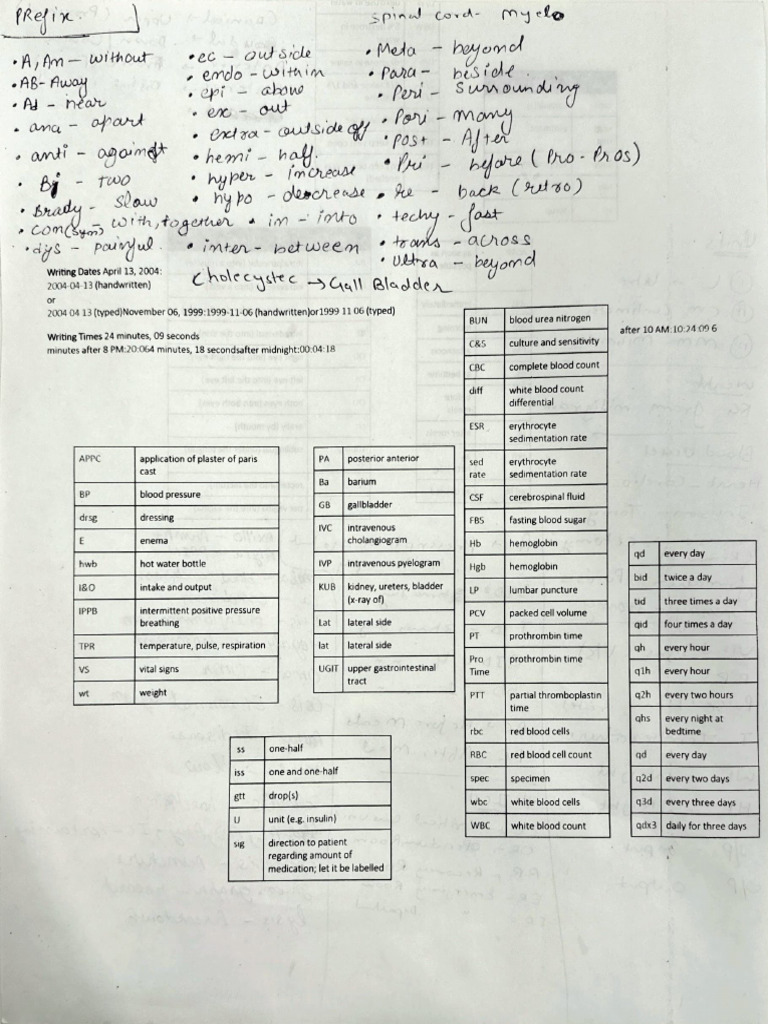 PRefix.
spinal cord- myelo
• A, An - without
• AB- Away
• Ad - near
• ana - apart
• anti - against
• Bi - two
• Brady - slow
• con(sym) - with, together
• dys - painful.
• ec - outside
• endo - within
• epi - above
• ex - out
• extra - outside off
• hemi - half.
• hyper - increase
• hypo - descrease
• in - into
• inter - between
• Meta - beyond
• Para - beside.
• Peri - surrounding
• Pori - many
• Post - After
• Pri - before ( Pro - Pros)
• Re - back (retro)
• techy - fast
• trans - across
• ultra - beyond
Cholecystec → Gall Bladder
Writing Dates April 13, 2004:
2004-04-13 (handwritten)
or
2004 04 13 (typed)November 06, 1999:1999-11-06 (handwritten)or1999 11 06 (typed)
Writing Times 24 minutes, 09 seconds
minutes after 8 PM:20:064 minutes, 18 secondsafter midnight:00:04:18
after 10 AM:10:24:09 6
APPC application of plaster of paris
cast
BP blood pressure
drsg dressing
E enema
hwb hot water bottle
I&O intake and output
IPPB intermittent positive pressure
breathing
TPR temperature, pulse, respiration
VS vital signs
wt weight
PA posterior anterior
Ba barium
GB gallbladder
IVC intravenous
cholangiogram
IVP intravenous pyelogram
KUB kidney, ureters, bladder
(x-ray of)
Lat lateral side
lat lateral side
UGIT upper gastrointestinal
tract
BUN blood urea nitrogen
C&S culture and sensitivity
CBC complete blood count
diff white blood count
differential
ESR erythrocyte
sedimentation rate
sed erythrocyte
rate sedimentation rate
CSF cerebrospinal fluid
FBS fasting blood sugar
Hb hemoglobin
Hgb hemoglobin
LP lumbar puncture
PCV packed cell volume
PT prothrombin time
Pro prothrombin time
Time
PTT partial thromboplastin
time
rbc red blood cells
RBC red blood cell count
spec specimen
wbc white blood cells
WBC white blood count
qd every day
bid twice a day
tid three times a day
qid four times a day
qh every hour
q1h every hour
q2h every two hours
qhs every night at
bedtime
qd every day
q2d every two days
q3d every three days
qdx3 daily for three days
ss one-half
iss one and one-half
gtt drop(s)
U unit (e.g. insulin)
sig direction to patient
regarding amount of
medication; let it be labelled